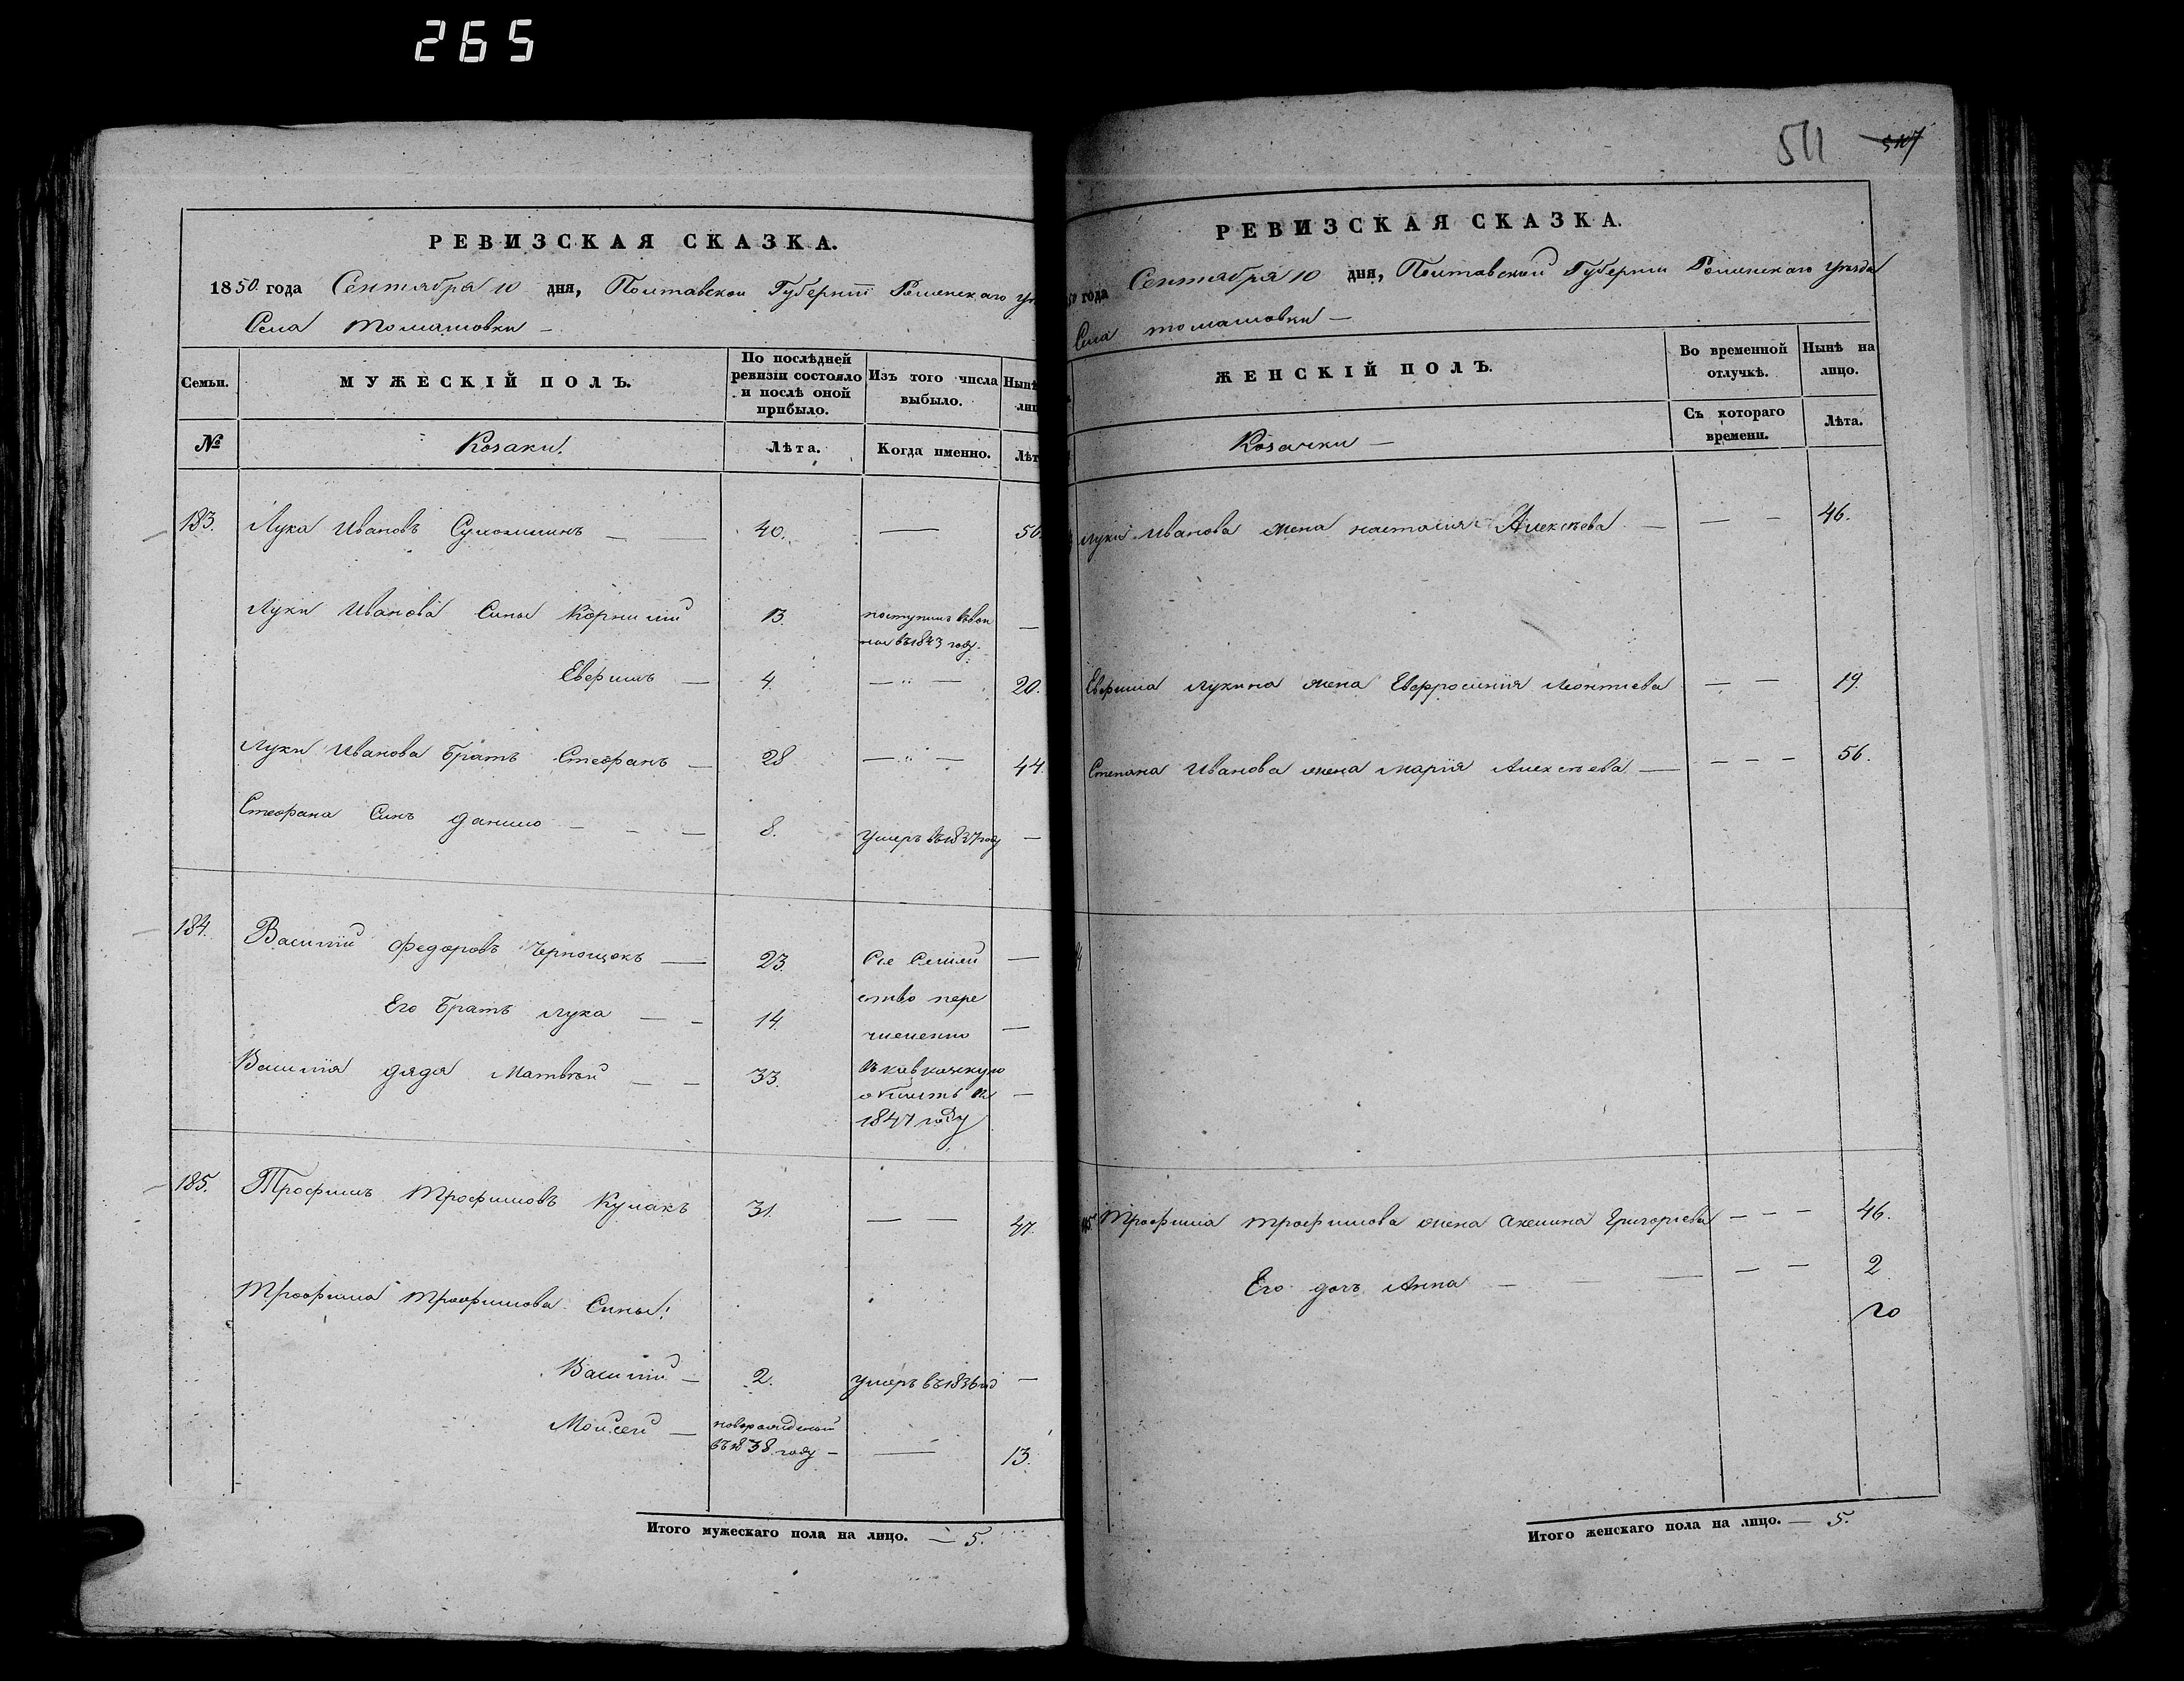 265
РЕВИЗСКАЯ СКАЗКА.
1850 года Сентября 10 дня, Полтавской Губерніи Роменскаго
Села Томашовки —
Семьи.
МУЖЕСКІЙ ПОЛЪ.
По послѣдней ревизіи состояло и послѣ оной прибыло.
Изъ того числа выбыло.
№
Козаки.
Лѣта.
Когда именно.
183. Лука Ивановъ 40. — 50.
Луки Иванова Сины Корнилій 13. поступилъ въ 1843 году. —
Еверимъ — 4. — 20.
Луки Иванова Братъ Стефанъ — 28 — 44.
Стефана Синъ Данило — 8. умеръ въ 1837 году —
184. Василій Федоровъ Чернощокъ — 23. Сіе Семей —
Его Братъ Лука — 14. ство пере
численно —
Василія дядя Матвѣй — 33. въ Кавказкую
область въ —
1847 году
185. Трофимъ Трофимовъ Кулакъ 31. — 47.
Трофима Трофимова Сины:
Василій — 2. умеръ въ 1836 —
Мойсей — новорожденный
въ 1838 году — — 13.
Итого мужескаго пола на лицо. — 5.
511 517
РЕВИЗСКАЯ СКАЗКА.
года Сентября 10 дня, Полтавской Губерніи Роменскаго уѣзда
Села Томашовки —
ЖЕНСКІЙ ПОЛЪ.
Во временной отлучкѣ.
Нынѣ на лицо.
Козачки —
Съ котораго времени.
Лѣта.
Луки Иванова жена Наталия Алексѣева — — — 46.
Еверима Лукина жена Евфросинія Леонтіева — — 19.
Степана Иванова жена Марія Алексѣева — — — — 56.
Трофима Трофимова жена Акелина Григоріева — — — 46.
Его дочь Анна — — — — — 2
Итого женскаго пола на лицо. — 5.